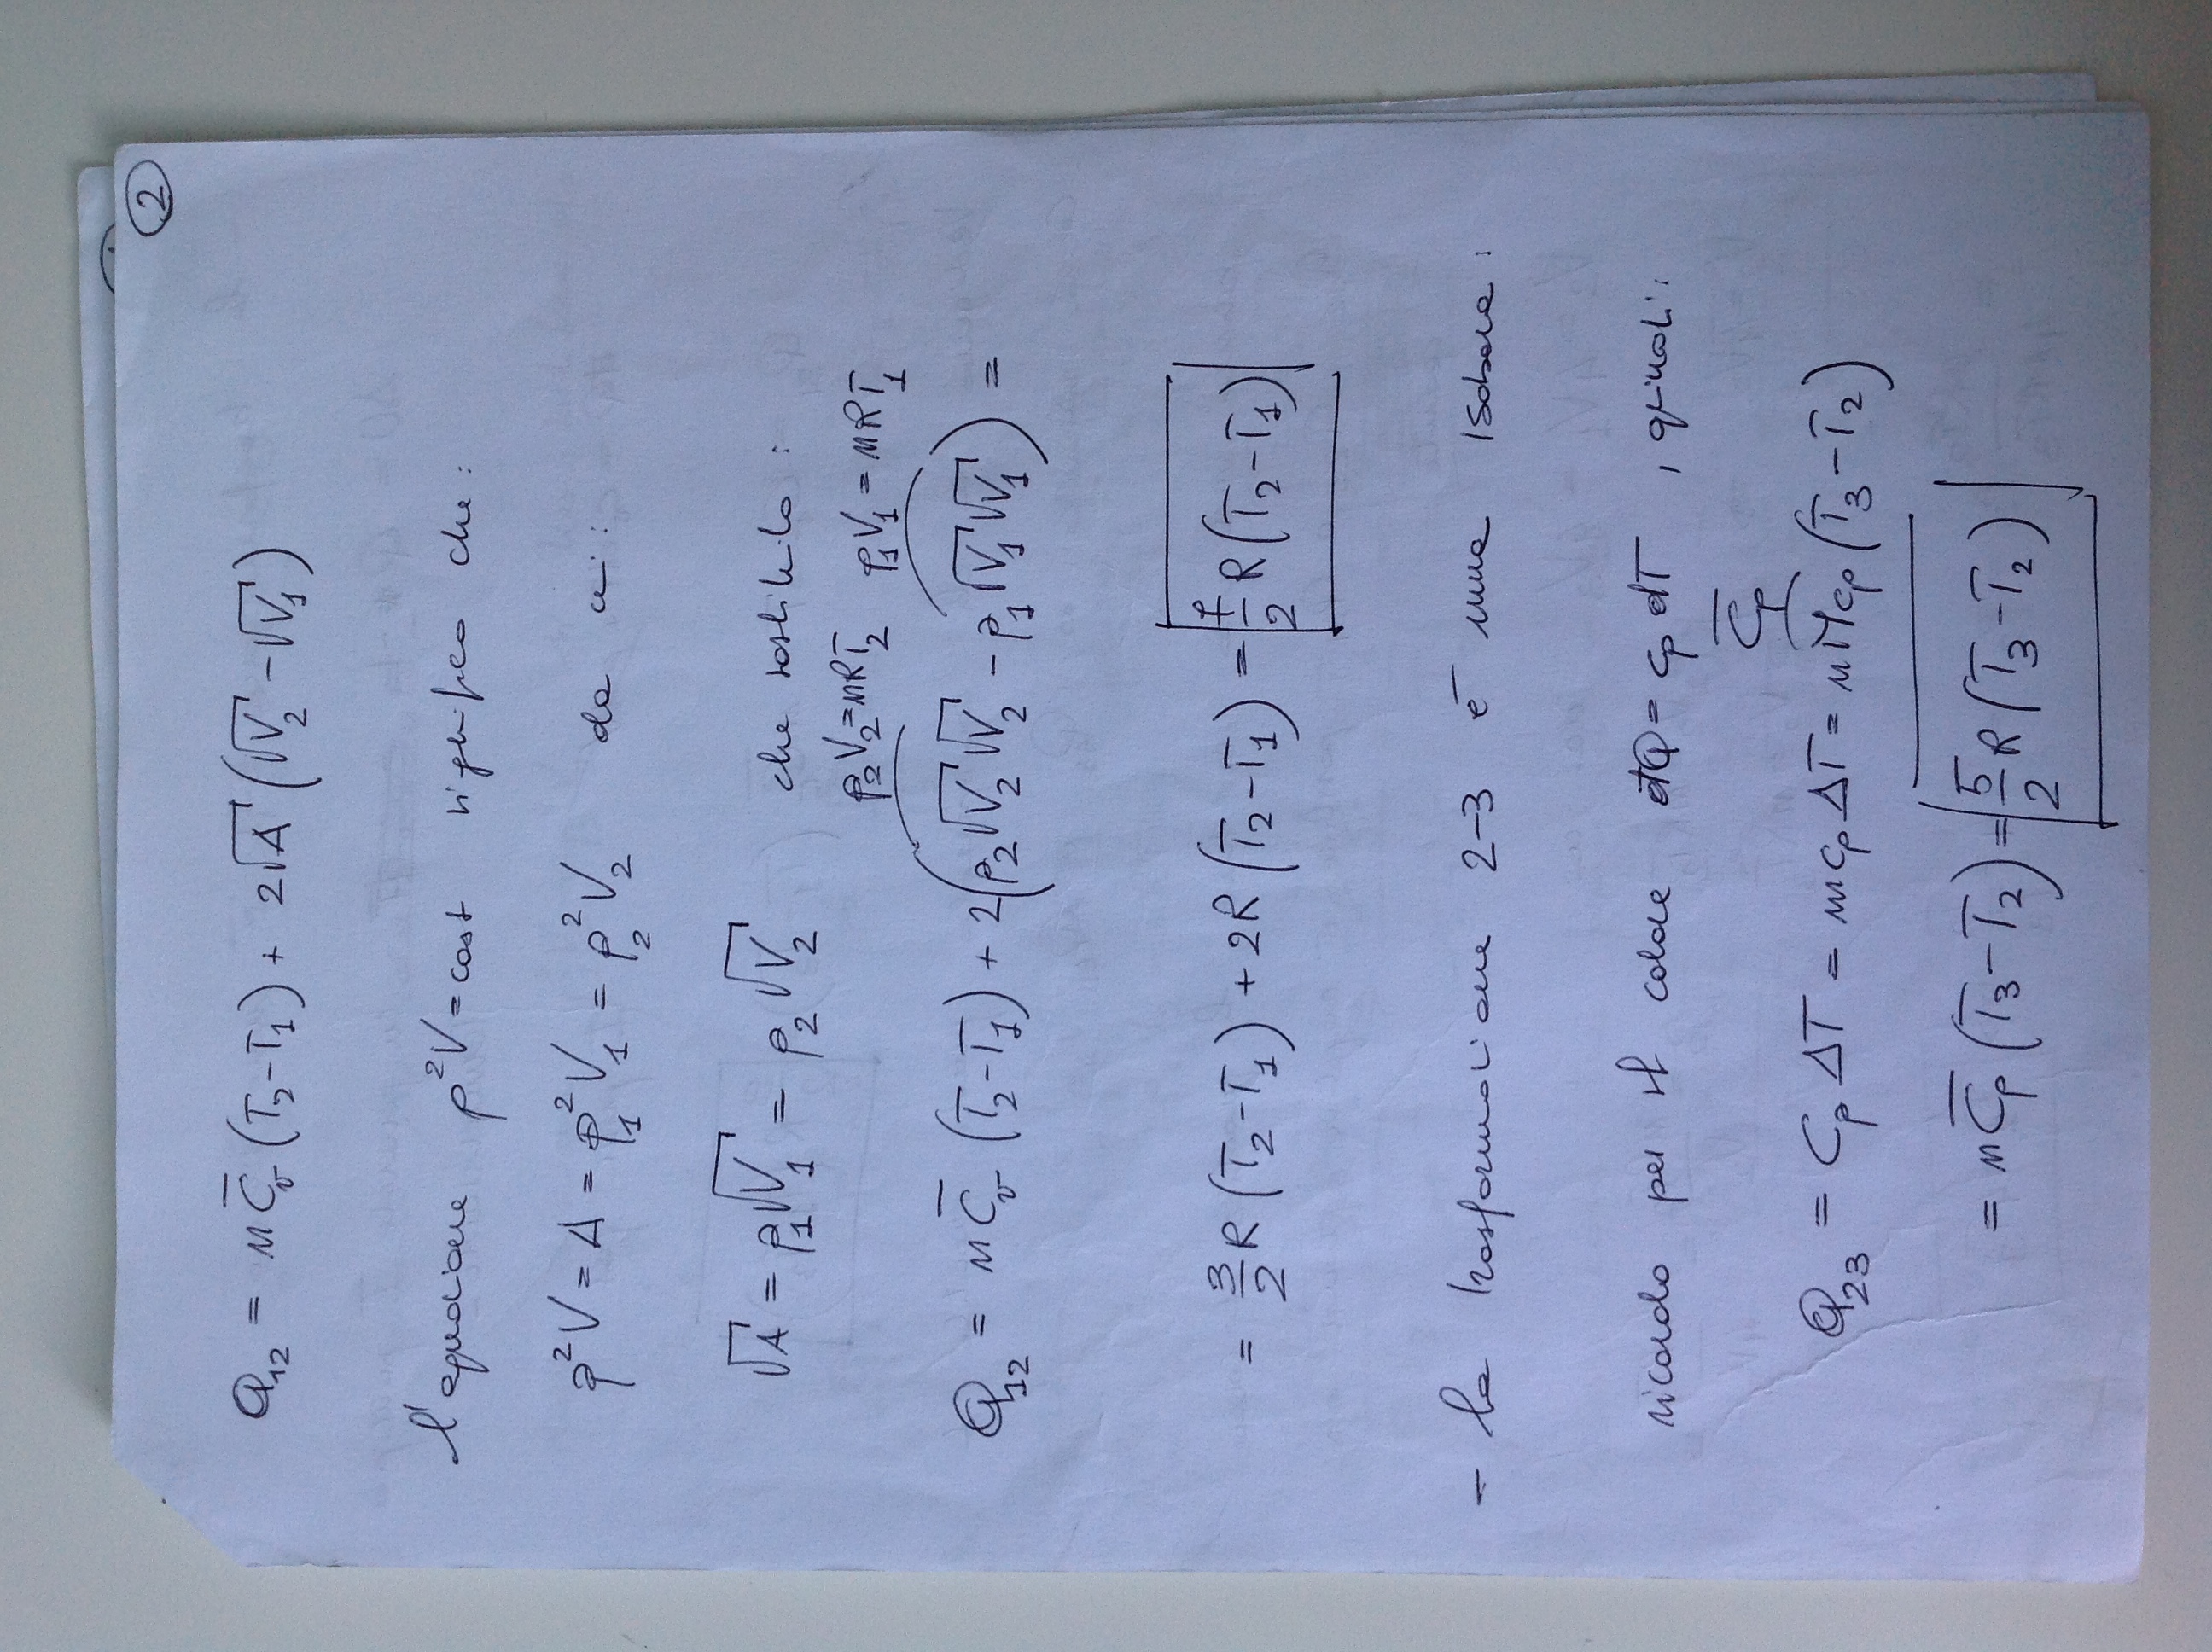 2
Q₁₂ = n C̅ᵥ (T₂-T₁) + 2√A (√V₂ - √V₁)
l'equazione p²V = cost significa che:
p²V = A = p₁²V₁ = p₂²V₂ da cui:
√A = p₁√V₁ = p₂√V₂ che sostituito:
p₂V₂=nRT₂ p₁V₁=nRT₁
Q₁₂ = n C̅ᵥ (T₂-T₁) + 2(p₂√V₂√V₂ - p₁√V₁√V₁) =
= 3/2 R (T₂-T₁) + 2R (T₂-T₁) = 7/2 R (T₂-T₁)
- la trasformazione 2-3 è una isobara:
ricordo per il calore đQ = cp dT , quindi:
C̅p
Q₂₃ = Cp ΔT = m cp ΔT = n M cp (T₃-T₂)
= n C̅p (T₃-T₂) = 5/2 R (T₃-T₂)